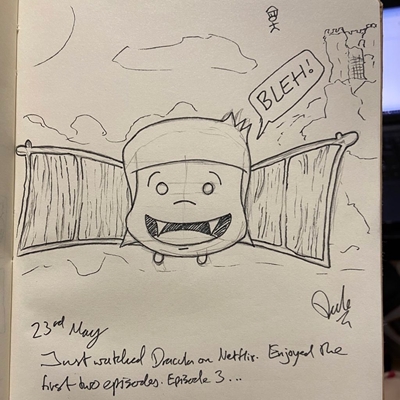 BLEH!
23rd May
Just watched Dracula on Netflix. Enjoyed the
first two episodes. Episode 3...